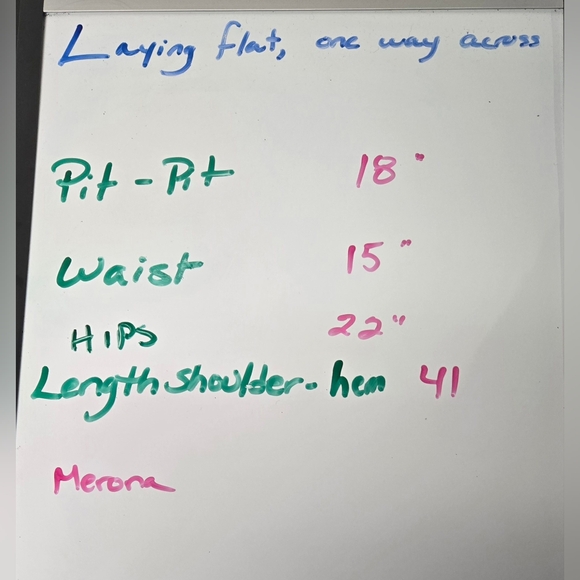 Laying flat, one way across
Pit - Pit 18"
Waist 15"
HIPS 22"
Length shoulder - hem 41
Merona